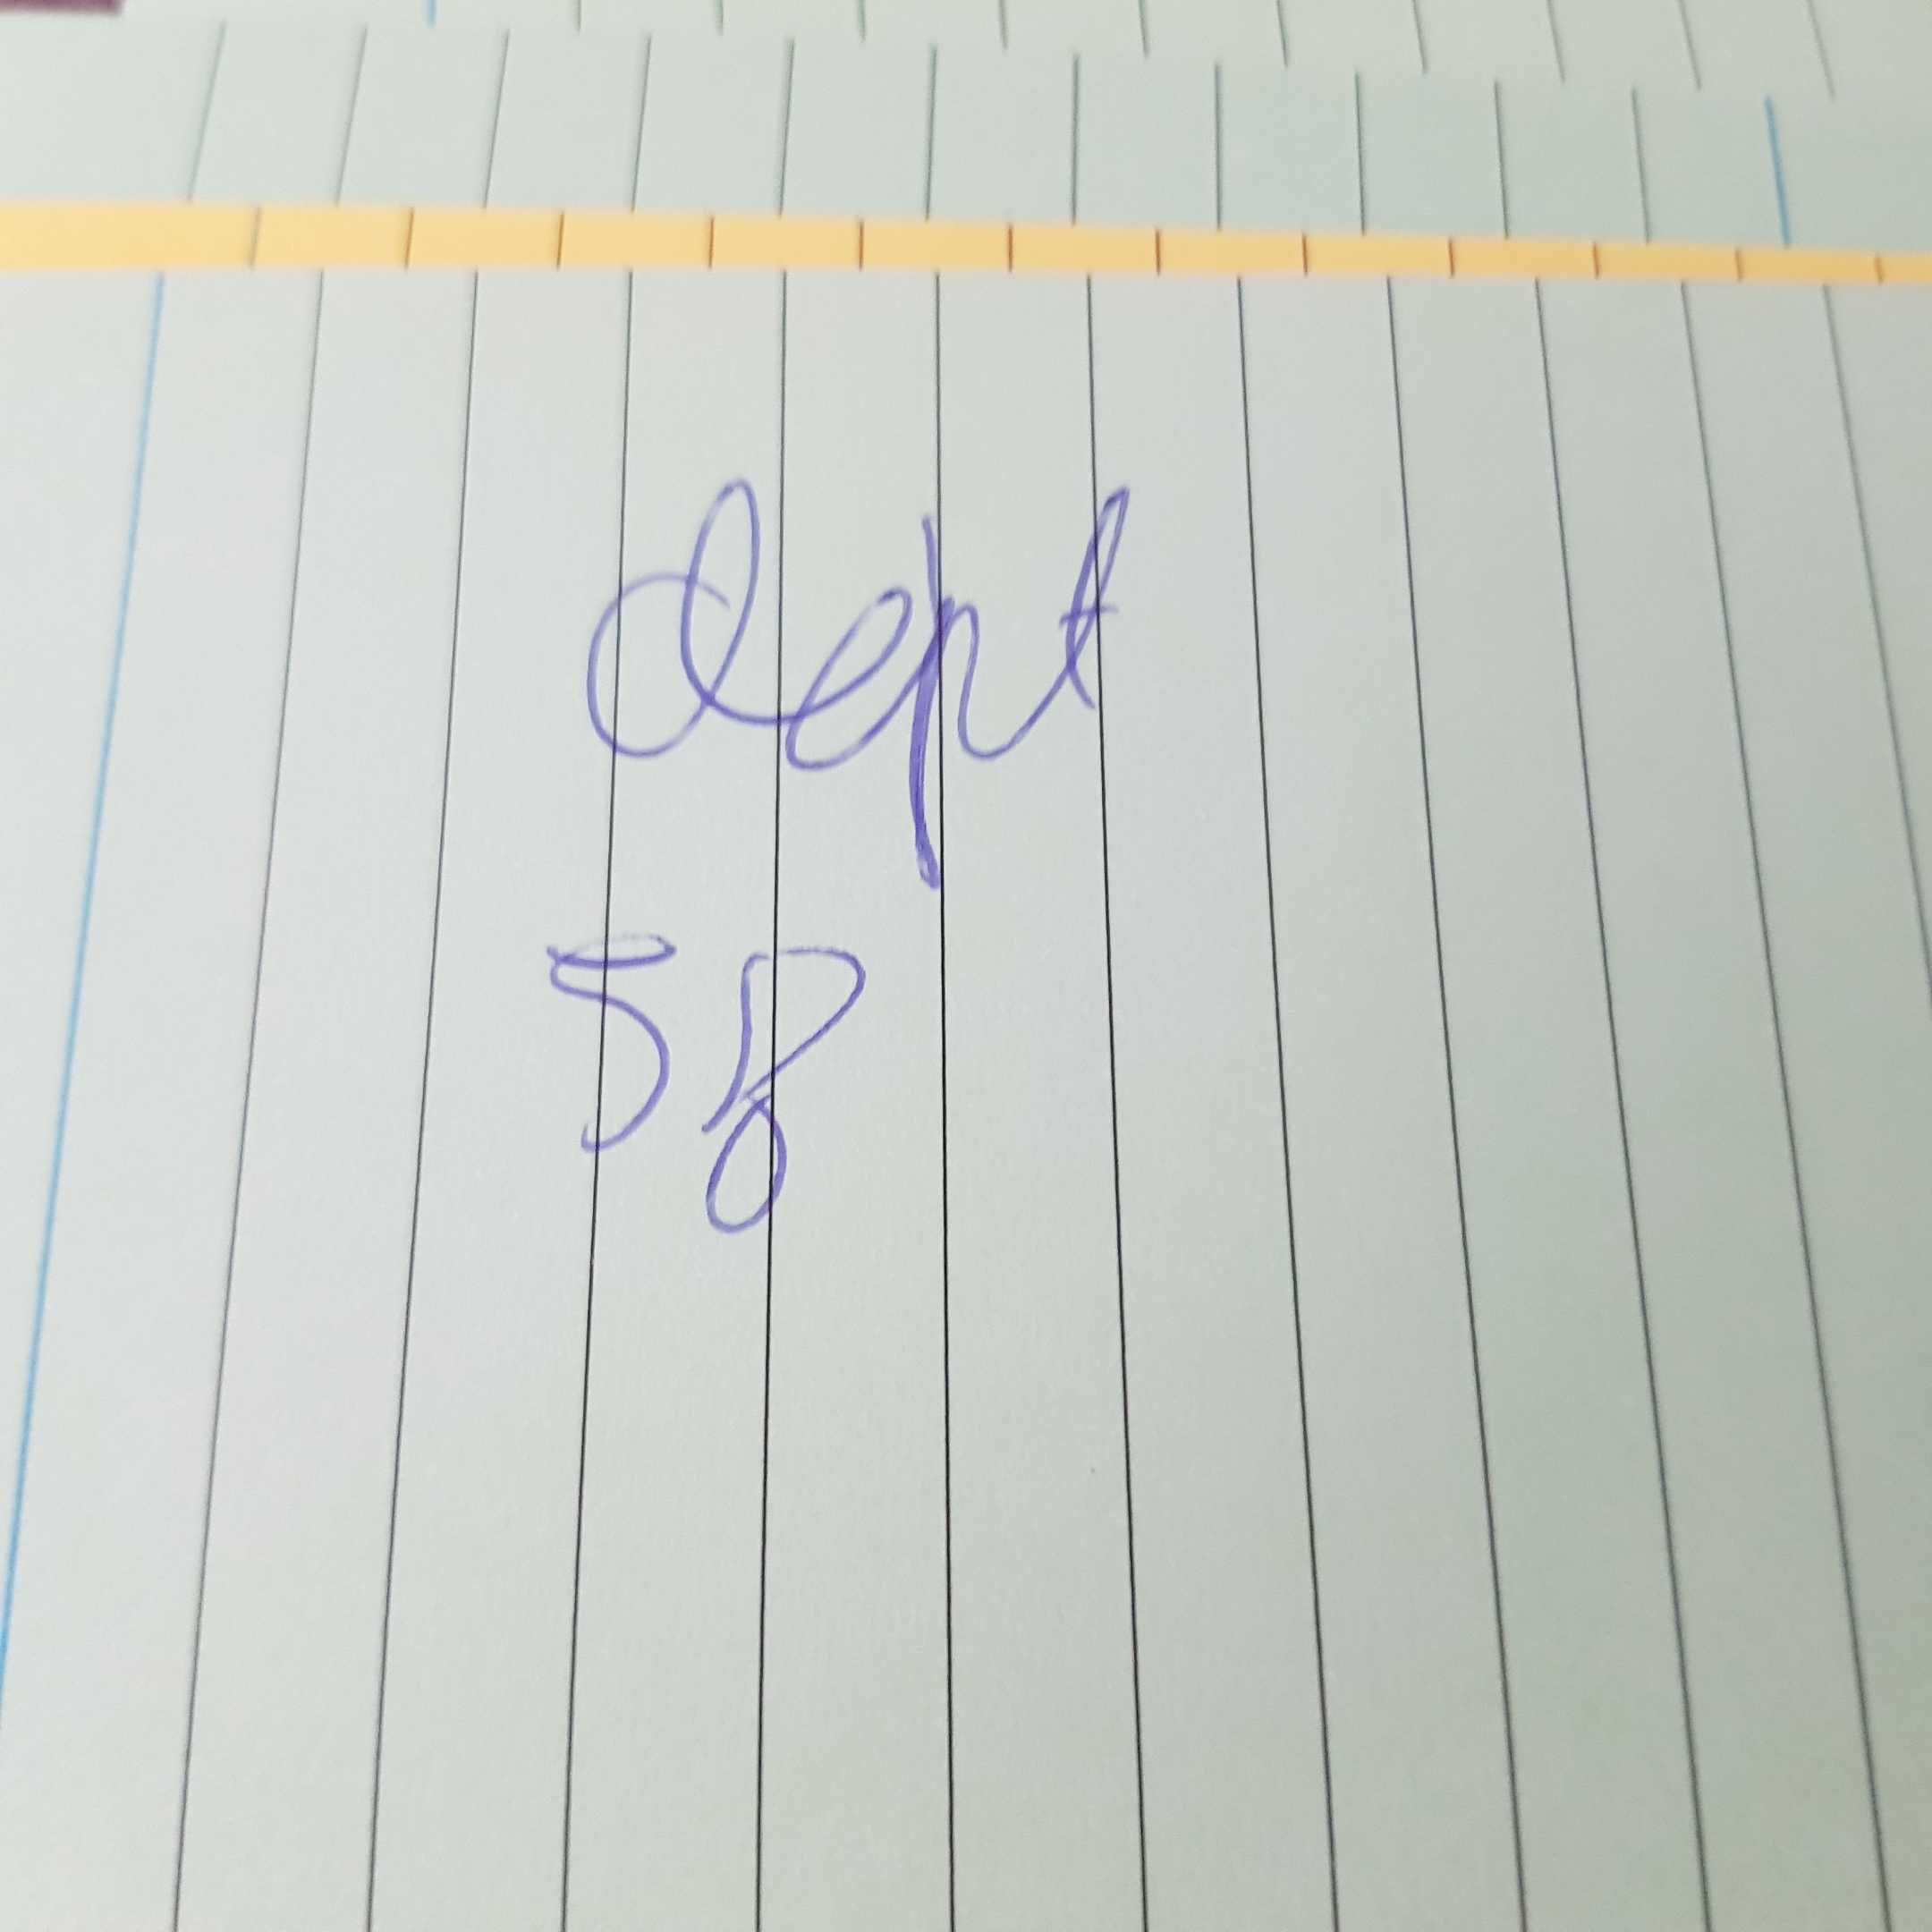 dept
58